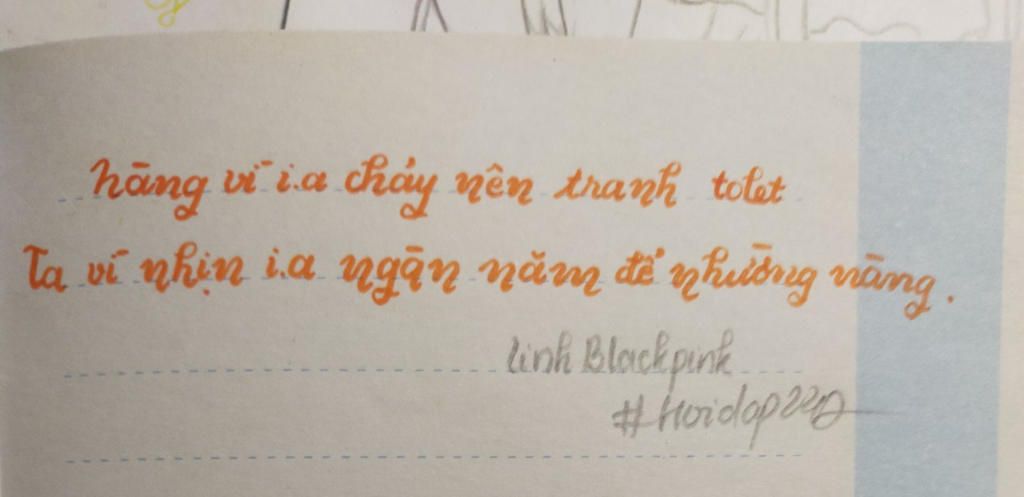 nàng vì i.a chảy nên tranh tolet
Ta vì nhịn i.a ngàn năm để nhường nàng.
Linh Blackpink
#Hoidap247